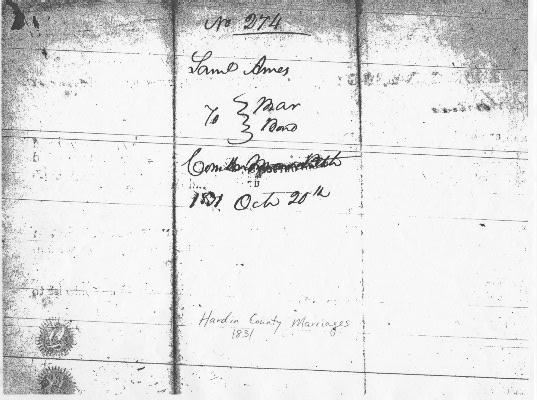 No 274
Saml Ames
To } Mar
Bond
Com
1831 Oct 20th
Hardin County Marriages
1831